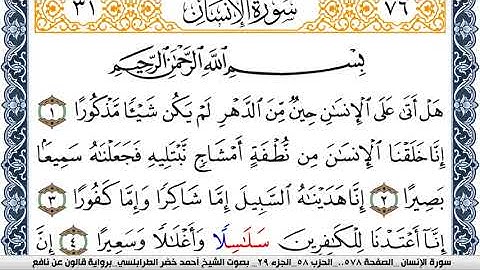 ٣١ سُورَةُ الإِنسَان ٧٦
بِسْمِ اللَّهِ الرَّحْمَٰنِ الرَّحِيمِ
هَلْ أَتَىٰ عَلَى ٱلْإِنسَٰنِ حِينٌ مِّنَ ٱلدَّهْرِ لَمْ يَكُن شَيْـًٔا مَّذْكُورًا ١
إِنَّا خَلَقْنَا ٱلْإِنسَٰنَ مِن نُّطْفَةٍ أَمْشَاجٍ نَّبْتَلِيهِ فَجَعَلْنَٰهُ سَمِيعًۢا
بَصِيرًا ٢ إِنَّا هَدَيْنَٰهُ ٱلسَّبِيلَ إِمَّا شَاكِرًا وَإِمَّا كَفُورًا ٣
إِنَّآ أَعْتَدْنَا لِلْكَٰفِرِينَ سَلَٰسِلًا وَأَغْلَٰلًا وَسَعِيرًا ٤ إِنَّ
سورة الإنسان _ الصفحة ٥٧٨..._ الحزب ٥٨_ الجزء ٢٩_ بصوت الشيخ أحمد خضر الطرابلسي _ برواية قالون عن نافع